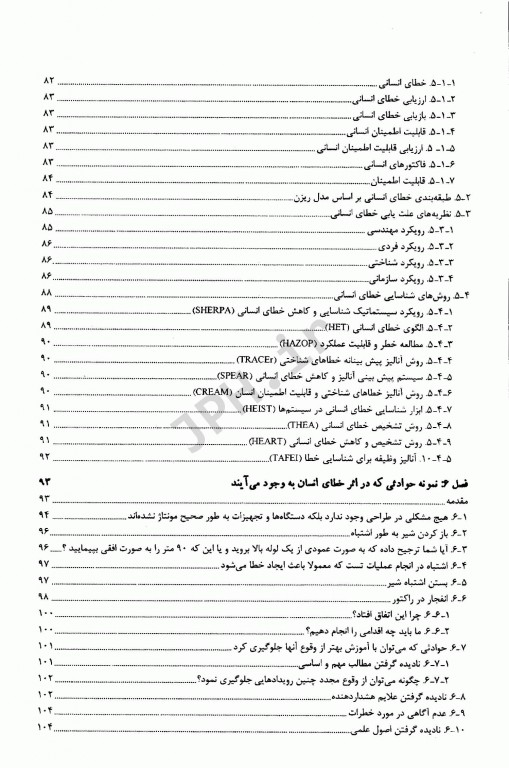 ۵-۱-۱. خطای انسانی ... ۸۲
۵-۱-۲. ارزیابی خطای انسانی ... ۸۳
۵-۱-۳. بازیابی خطای انسانی ... ۸۳
۵-۱-۴. قابلیت اطمینان انسانی ... ۸۳
۵-۱-۵. ارزیابی قابلیت اطمینان انسانی ... ۸۳
۵-۱-۶. فاکتورهای انسانی ... ۸۳
۵-۱-۷. قابلیت اطمینان ... ۸۴
۵-۲. طبقه‌بندی خطای انسانی بر اساس مدل ریزن ... ۸۴
۵-۳. نظریه‌های علت یابی خطای انسانی ... ۸۵
۵-۳-۱. رویکرد مهندسی ... ۸۵
۵-۳-۲. رویکرد فردی ... ۸۶
۵-۳-۳. رویکرد شناختی ... ۸۶
۵-۳-۴. رویکرد سازمانی ... ۸۶
۵-۴. روش‌های شناسایی خطای انسانی ... ۸۸
۵-۴-۱. رویکرد سیستماتیک شناسایی و کاهش خطای انسانی (SHERPA) ... ۸۹
۵-۴-۲. الگوی خطای انسانی (HET) ... ۸۹
۵-۴-۳. مطالعه خطر و قابلیت عملکرد (HAZOP) ... ۹۰
۵-۴-۴. روش آنالیز پیش بینانه خطاهای شناختی (TRACEr) ... ۹۰
۵-۴-۵. سیستم پیش بینی آنالیز و کاهش خطای انسانی (SPEAR) ... ۹۰
۵-۴-۶. روش آنالیز خطاهای شناختی و قابلیت اطمینان انسان (CREAM) ... ۹۰
۵-۴-۷. ابزار شناسایی خطای انسانی در سیستم‌ها (HEIST) ... ۹۱
۵-۴-۸. روش تشخیص خطای انسانی (THEA) ... ۹۱
۵-۴-۹. روش تشخیص و کاهش خطای انسانی (HEART) ... ۹۱
۵-۴-۱۰. آنالیز وظیفه برای شناسایی خطا (TAFEI) ... ۹۲
فصل ۶: نمونه حوادثی که در اثر خطای انسان به وجود می‌آیند ۹۳
مقدمه ... ۹۳
۶-۱. هیچ مشکلی در طراحی وجود ندارد بلکه دستگاه‌ها و تجهیزات به طور صحیح مونتاژ نشده‌اند ... ۹۴
۶-۲. باز کردن شیر به طور اشتباه ... ۹۶
۶-۳. آیا شما ترجیح داده که به صورت عمودی از یک لوله بالا بروید و یا این که ۹۰ متر را به صورت افقی بپیمایید ؟ ... ۹۶
۶-۴. اشتباه در انجام عملیات تست که معمولا باعث ایجاد خطا می‌شود ... ۹۷
۶-۵. بستن اشتباه شیر ... ۹۷
۶-۶. انفجار در راکتور ... ۹۸
۶-۶-۱. چرا این اتفاق افتاد؟ ... ۱۰۰
۶-۶-۲. ما باید چه اقدامی را انجام دهیم؟ ... ۱۰۰
۶-۷. حوادثی که می‌توان با آموزش بهتر از وقوع آنها جلوگیری کرد ... ۱۰۱
۶-۷-۱. نادیده گرفتن مطالب مهم و اساسی ... ۱۰۱
۶-۷-۲. چگونه می‌توان از وقوع مجدد چنین رویدادهایی جلوگیری نمود؟ ... ۱۰۲
۶-۸. نادیده گرفتن علایم هشداردهنده ... ۱۰۲
۶-۹. عدم آگاهی در مورد خطرات ... ۱۰۴
۶-۱۰. نادیده گرفتن اصول علمی ... ۱۰۴